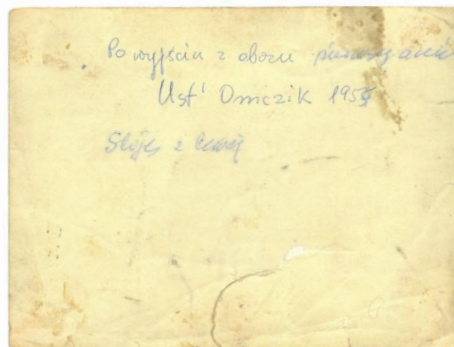 Po wyjściu z obozu
Ust' Omczik 195
Stoję z lewej